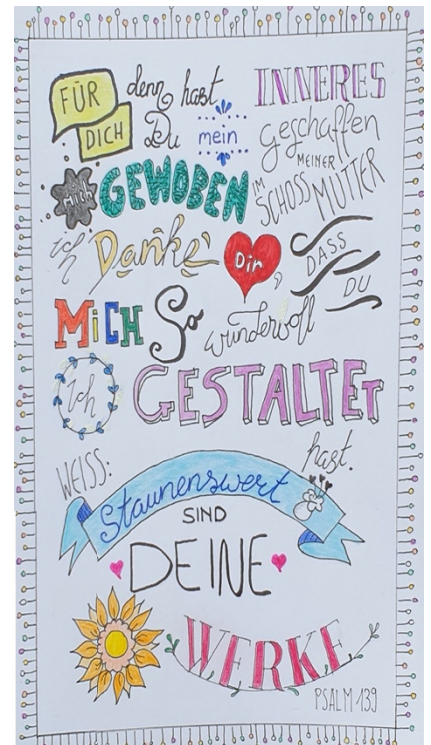 FÜR DICH
denn hast Du mein INNERES geschaffen
MICH GEWOBEN IM SCHOSS MEINER MUTTER
ich Danke Dir, DASS DU
MICH So wundervoll
GESTALTET hast.
Ich WEISS:
Staunenswert
SIND
DEINE
WERKE
PSALM 139